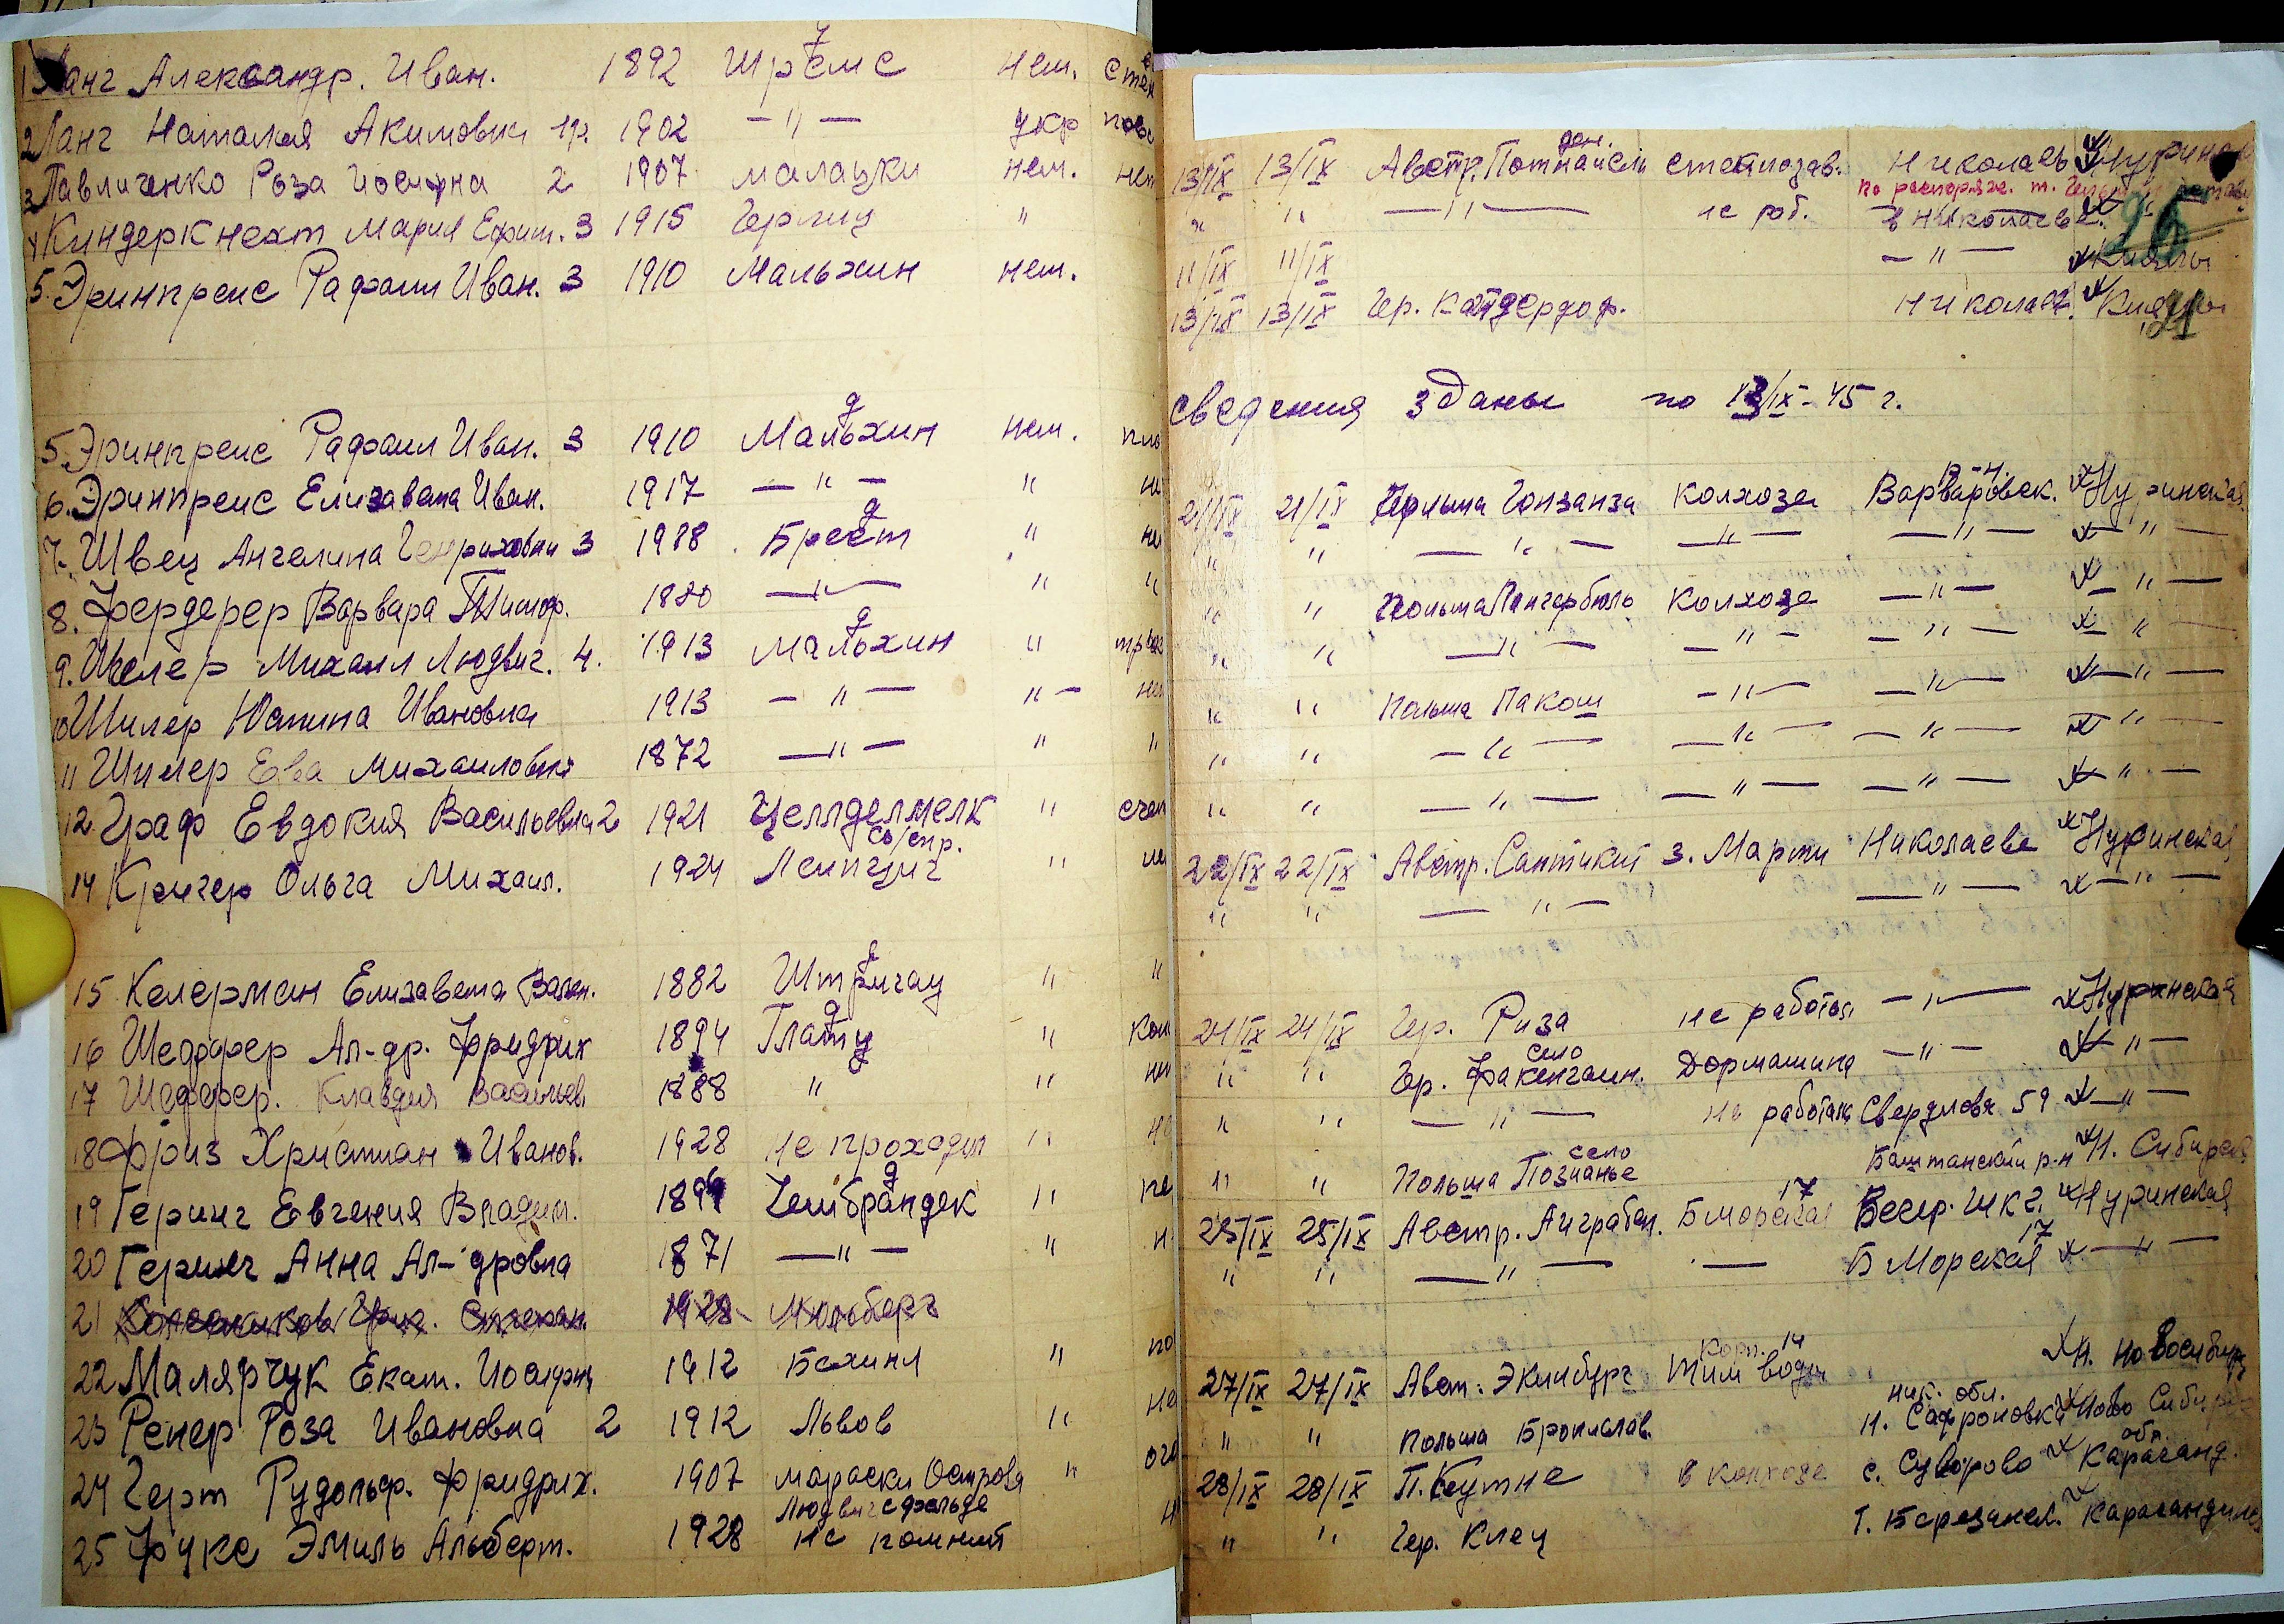 1 Ланг Александр. Иван. 1892 Шремс нем.
2 Ланг Наталия Акимовна 1902 — " — укр
3 Павличенко Роза Иосифна 2 1907 Малацки нем.
4 Киндеркнехт Мария Ефим. 3 1915 Герлиц "
5. Эринпреис Рафаил Иван. 3 1910 Мальхин нем.
5. Эринпреис Рафаил Иван. 3 1910 Мальхин нем.
6. Эринпреис Елизавета Иван. 1917 — " — "
7. Швец Ангелина Генриховна 3 1918 Брест "
8. Фердерер Варвара Тимоф. 1880 — " — "
9. Шилер Михаил Людвиг. 4. 1913 Мальхин "
10 Шилер Юлина Ивановна 1913 — " — " —
11 Шилер Ева Михаиловна 1872 — " — "
12. Граф Евдокия Васильевна 2 1921 Целлделмелк "
14 Кригер Ольга Михаил. 1924 Леипциг "
15 Келерман Елизавета Вален. 1882 Штригау "
16 Шеффер Ал-др. Фридрих 1894 Глатц "
17 Шеффер. Клавдия Васильев. 1888 " "
18 Фриз Христиан Иванов. 1928 Не проходил "
19 Геринг Евгения Владим. 1896 Геибрандек "
20 Геринг Анна Ал-дровна 1871 — " — "
21 1928 Мюльберг
22 Малярчук Екат. Иосифн. 1912 Бехинл "
23 Репер Роза Ивановна 2 1912 Львов "
24 Герт Рудольф. Фридрих. 1907 мараски Острова "
Людвигсфельде
25 Фукс Эмиль Альберт. 1928 не помнит
13/IX 13/IX Австр. стеклозав. Николаев Нуринск
по распоряж. т.
" " — " — не раб. в Николаеве. 26
11/IX 11/IX — " — Кияглы
13/IX 13/IX Гер. Кайдердорф. Николаев. Кияглы
21
Сведения зданы по 13/IX-45 г.
р-н.
21/IX 21/IX Польша Гонзанза колхозе Варваровск. Нуринская
" " — " — — " — — " — — " —
" " Польша Лангербюль Колхозе — " — — " —
" " — " — — " — — " — — " —
" " Польша Пакош — " — — " — — " —
" " — " — — " — — " — — " —
" " — " — — " — — " — — " —
22/IX 22/IX Австр. Сантикит з. Марти Николаеве Нуринская
" " — " — — " — — " —
24/IX 24/IX Гер. Риза не работал — " — Нуринская
село
" " Гер. Факенгаин. Дормашина — " — — " —
" " — " — не работала Свердлова 59 — " —
село
" " Польша Познанье Баштанский р-н Н. Сибирск
17
25/IX 25/IX Австр. Аиграбен. Б морская Весер. шк 2. Нуринская
17
" " — " — — Б Морская — " —
корп. 14
27/IX 27/IX Авст. Экинбург Тим воды Н. Новосибир
ник. обл.
" " Польша Бронислав. Н. Сафроновка Ново Сибирск
обл.
28/IX 28/IX П. Кутне в колхозе с. Суворово Караганд.
" " Гер. Клец Т. Березанск. Карагандинск